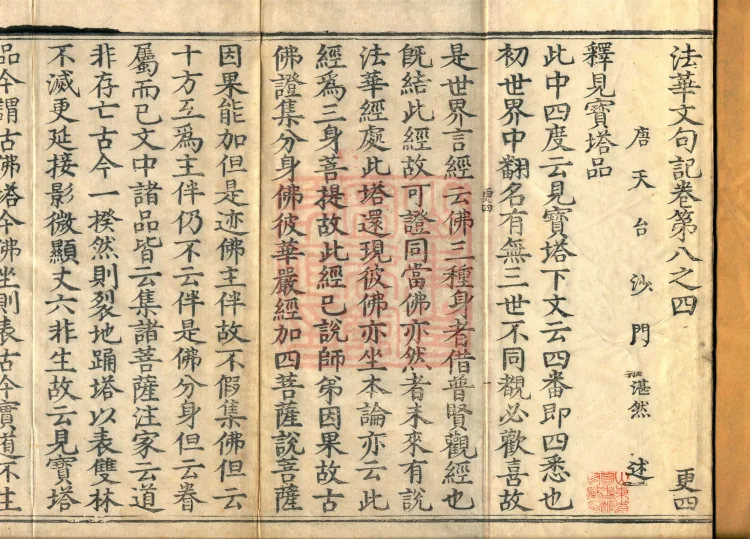 法華文句記卷第八之四 更四
唐天台沙門湛然述
釋見寶塔品
此中四度云見寶塔下文云四番即四悉也
初世界中翻名有無三世不同覩必歡喜故
是世界言經云佛三種身者借普賢觀經也
更四
旣結此經故可證同當佛亦然者未來有說
法華經處此塔還現彼佛亦坐本論亦云此
經爲三身菩提故此經已說師弟因果故古
佛證集分身佛彼華嚴經加四菩薩說菩薩
因果能加但是迹佛主伴故不假集佛但云
十方互爲主伴仍不云伴是佛分身但云眷
屬而已文中諸品皆云集諸菩薩注家云道
非存亡古今一揆然則裂地踊塔以表雙林
不滅更延接影微顯丈六非生故云見寶塔
品今謂古佛塔今佛坐則表古今實道不生